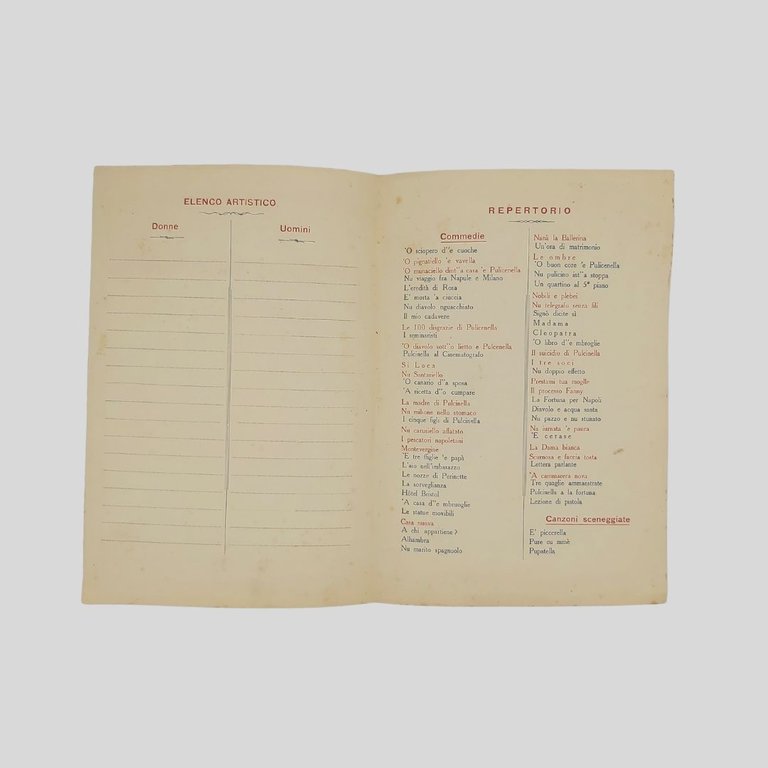 ELENCO ARTISTICO
Donne
Uomini
REPERTORIO
Commedie
'O sciopero d''e cuoche
'O pignatiello 'e vavella
'O munaciello dint'a casa 'e Pulicenella
Nu viaggio fra Napule e Milano
L'eredità di Rosa
E' morta 'a ciuccia
Nu diavolo nguacchiato
Il mio cadavere
Le 100 disgrazie di Pulicenella
I seminaristi
'O diavolo sott''o lietto e Pulcenella
Pulcinella al Cinematografo
Si Loca
Nu Santariello
'O canario d''a sposa
'A ricetta d''o cumpare
La madre di Pulcinella
Nu milione nello stomaco
I cinque figli di Pulcinella
Nu carusiello affatato
I pescatori napoletani
Montevergine
'E tre figlie 'e papà
L'zio nell'imbarazzo
Le nozze di Perinette
La sorveglianza
Hôtel Bristol
'A casa d''e mbruoglie
Le statue movibili
Casa nuova
A chi appartiene?
Alhambra
Nu marito spagnuolo
Nanà la Ballerina
Un'ora di matrimonio
Le ombre
'O buon core 'e Pulicenella
Nu pulicino int''a stoppa
Un quartino al 5° piano
Nobili e plebei
Nu telegrafo senza fili
Signò dicite sì
Madama
Cleopatra
'O libro d''e mbroglie
Il suicidio di Pulcinella
I tre soci
Nu doppio effetto
Prestami tua moglie
Il processo Fanny
La Fortuna per Napoli
Diavolo e acqua santa
Nu pazzo e nu stunato
Na nuttata 'e paura
'E cerase
La Dama bianca
Scurnosa e faccia tosta
Lettera parlante
'A cammarera nova
Tre quaglie ammaestrate
Pulcinella a la fortuna
Lezione di pistola
Canzoni sceneggiate
E' piccerella
Pure cu mme
Pupatella